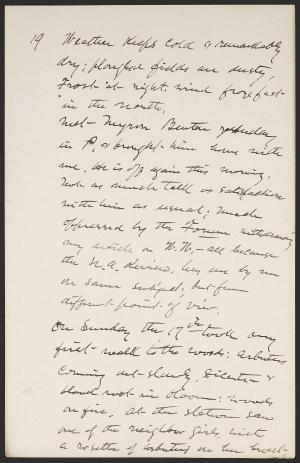 19 Weather keeps cold & remarkably
dry; ploughed fields are dusty,
Frost at night, wind from east
in the north.
Met Myron Benton yesterday
in P. & brought him home with
me. He is off again this morning.
Not as much talk or satisfaction
with him as usual; much
oppressed by the Forum withdrawing
my article on W.W. — all because
the N.A. Review has one by me
on same subject, but from
different point of view.
On Sunday the 17th took my
first walk to the woods; arbutus
coming out slowly, dicentra &
blood root in bloom; woods
on fire. At the station saw
one of the neighbor girls, with
a rosette of arbutus on her breast